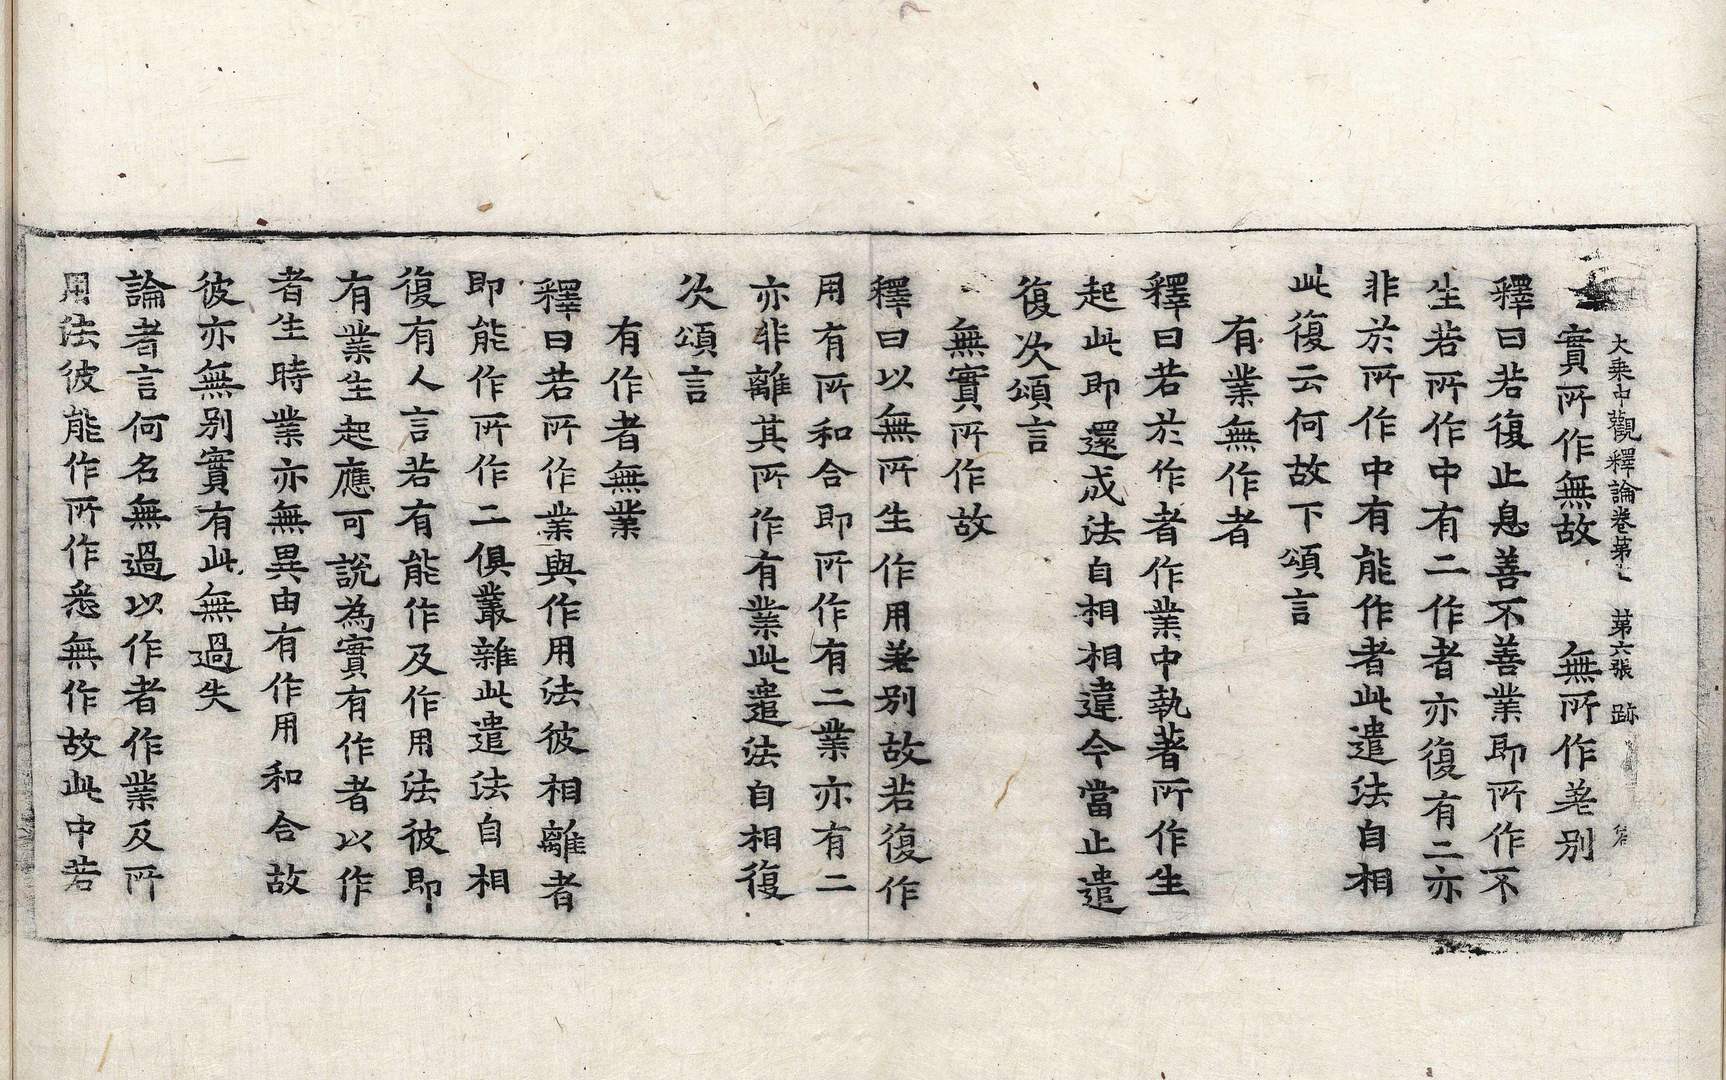 大乘中觀釋論卷第七 第六張 跡
實所作無故 無所作差別
釋曰若復止息善不善業即所作不
生若所作中有二作者亦復有二亦
非於所作中有能作者此遣法自相
此復云何故下頌言
有業無作者
釋曰若於作者作業中執著所作生
起此即還成法自相相違今當止遣
復次頌言
無實所作故
釋曰以無所生作用差別故若復作
用有所和合即所作有二業亦有二
亦非離其所作有業此遣法自相復
次頌言
有作者無業
釋曰若所作業與作用法彼相離者
即能作所作二俱叢雜此遣法自相
復有人言若有能作及作用法彼即
有業生起應可說為實有作者以作
者生時業亦無異由有作用和合故
彼亦無別實有此無過失
論者言何名無過以作者作業及所
用法彼能作所作悉無作故此中若